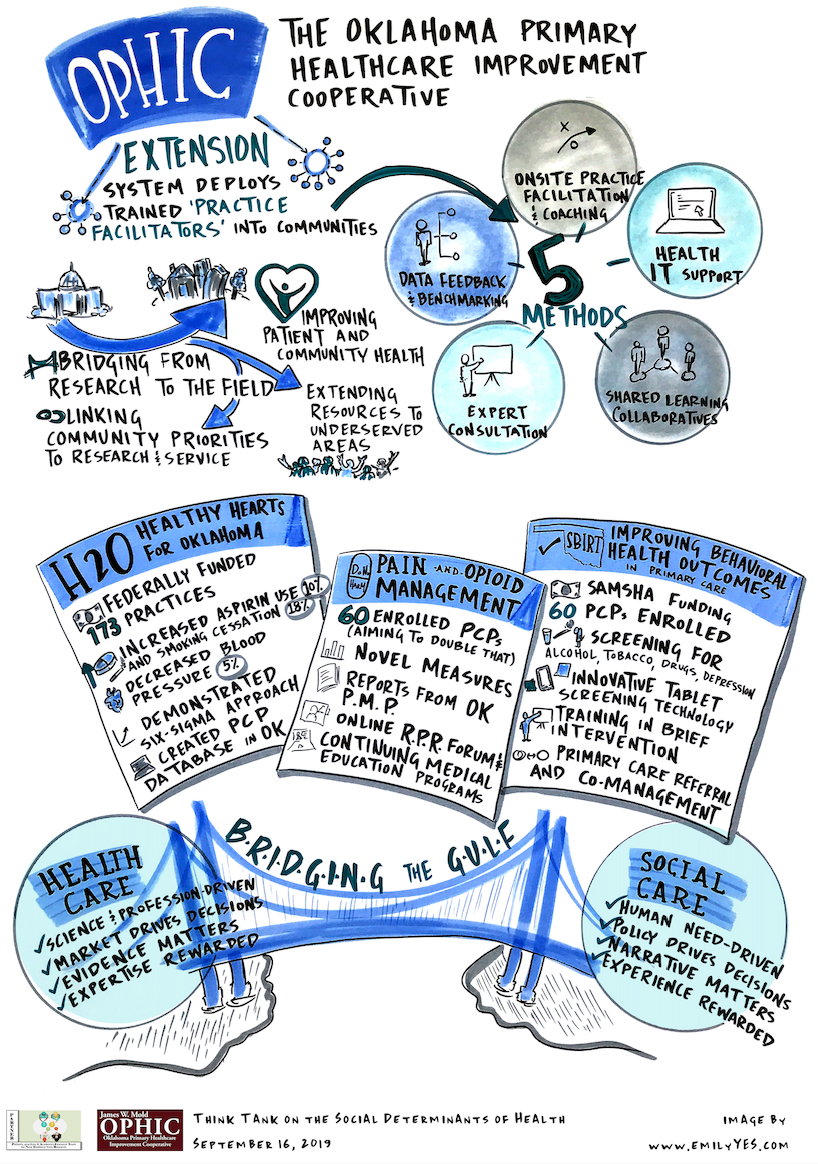 OPHIC
THE OKLAHOMA PRIMARY
HEALTHCARE IMPROVEMENT
COOPERATIVE
EXTENSION
SYSTEM DEPLOYS
TRAINED 'PRACTICE
FACILITATORS' INTO COMMUNITIES
5
METHODS
ONSITE PRACTICE
FACILITATION
& COACHING
HEALTH
IT SUPPORT
SHARED LEARNING
COLLABORATIVES
EXPERT
CONSULTATION
DATA FEEDBACK
& BENCHMARKING
BRIDGING FROM
RESEARCH TO THE FIELD
LINKING
COMMUNITY PRIORITIES
TO RESEARCH & SERVICE
IMPROVING
PATIENT AND
COMMUNITY HEALTH
EXTENDING
RESOURCES TO
UNDERSERVED
AREAS
H2O HEALTHY HEARTS
FOR OKLAHOMA
FEDERALLY FUNDED
173 PRACTICES
INCREASED ASPIRIN USE 10%
AND SMOKING CESSATION 18%
DECREASED BLOOD
PRESSURE 5%
DEMONSTRATED
SIX-SIGMA APPROACH
CREATED PCP
DATABASE IN OK
PAIN AND OPIOID
MANAGEMENT
60 ENROLLED PCPs
(AIMING TO DOUBLE THAT)
NOVEL MEASURES
REPORTS FROM OK
P.M.P.
ONLINE R.P.R. FORUM &
CONTINUING MEDICAL
EDUCATION PROGRAMS
SBIRT
IMPROVING BEHAVIORAL
HEALTH OUTCOMES
IN PRIMARY CARE
SAMSHA FUNDING
60 PCPs ENROLLED
SCREENING FOR
ALCOHOL, TOBACCO, DRUGS, DEPRESSION
INNOVATIVE TABLET
SCREENING TECHNOLOGY
TRAINING IN BRIEF
INTERVENTION
PRIMARY CARE REFERRAL
AND CO-MANAGEMENT
B·R·I·D·G·I·N·G THE G·U·L·F
HEALTH
CARE
✓SCIENCE & PROFESSION-DRIVEN
✓MARKET DRIVES DECISIONS
✓EVIDENCE MATTERS
✓EXPERTISE REWARDED
SOCIAL
CARE
✓HUMAN NEED-DRIVEN
✓POLICY DRIVES DECISIONS
✓NARRATIVE MATTERS
✓EXPERIENCE REWARDED
PARTNER
James W. Mold
OPHIC
Oklahoma Primary Healthcare
Improvement Cooperative
THINK TANK ON THE SOCIAL DETERMINANTS OF HEALTH
SEPTEMBER 16, 2019
IMAGE BY
WWW.EMILYYES.COM